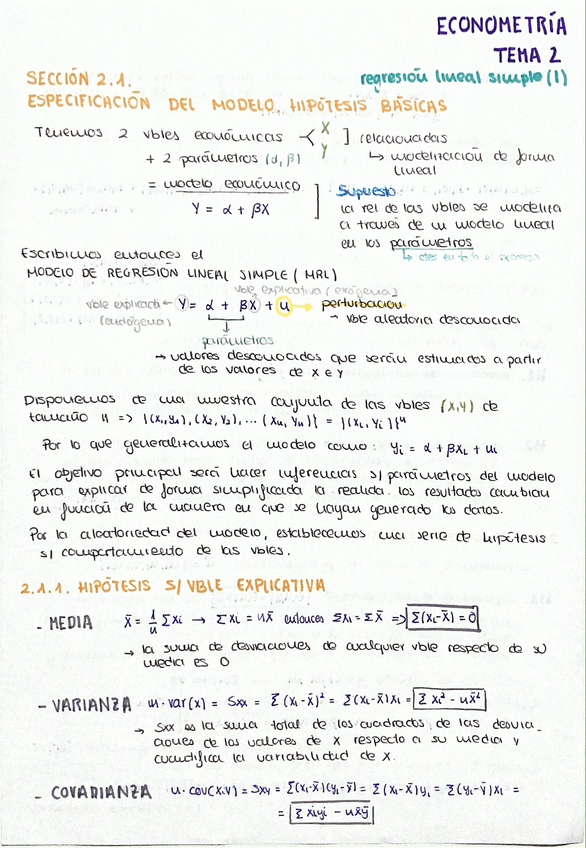 ECONOMETRÍA
TEMA 2
regresión lineal simple (1)
SECCIÓN 2.1.
ESPECIFICACIÓN DEL MODELO. HIPÓTESIS BÁSICAS
Tenemos 2 vbles económicas < X Y ] relacionadas
+ 2 parámetros (α, β) ↳ modelización de forma lineal
= modelo económico
Y = α + βX
Supuesto
la rel de las vbles se modeliza
a través de un modelo lineal
en los parámetros
Escribimos entonces el
MODELO DE REGRESIÓN LINEAL SIMPLE (MRL)
vble explicativa (exógena)
vble explicada ← Y = α + βX + u → perturbación
(endógena) → vble aleatoria desconocida
parámetros
→ valores desconocidos que serán estimados a partir
de los valores de X e Y
Disponemos de una muestra conjunta de las vbles (X,Y) de
tamaño n => {(X₁,Y₁), (X₂, Y₂), ... (Xn, Yn)} = {(Xi, Yi)}ⁿ
Por lo que generalizamos el modelo como: Yi = α + βXi + ui
El objetivo principal será hacer inferencias s/ parámetros del modelo
para explicar de forma simplificada la realida. los resultados cambian
en función de la manera en que se hayan generado los datos.
Por la aleatoriedad del modelo, establecemos una serie de hipótesis
s/ comportamiento de las vbles.
2.1.1. HIPÓTESIS S/ VBLE EXPLICATIVA
- MEDIA x̄ = 1/n Σxi → Σxi = nx̄ entonces Σxi = Σx̄ => Σ(xi-x̄) = 0
→ la suma de desviaciones de cualquier vble respecto de su
media es 0
- VARIANZA n·var(x) = Sxx = Σ(xi-x̄)² = Σ(xi-x̄)xi = Σxi² - nx̄²
→ Sxx es la suma total de los cuadrados de las desvia_
ciones de los valores de X respecto a su media y
cuantifica la variabilidad de X.
- COVADIANZA n·cov(x,y) = Sxy = Σ(xi-x̄)(yi-ȳ) = Σ(xi-x̄)yi = Σ(yi-ȳ)xi =
= Σxiyi - nx̄ȳ